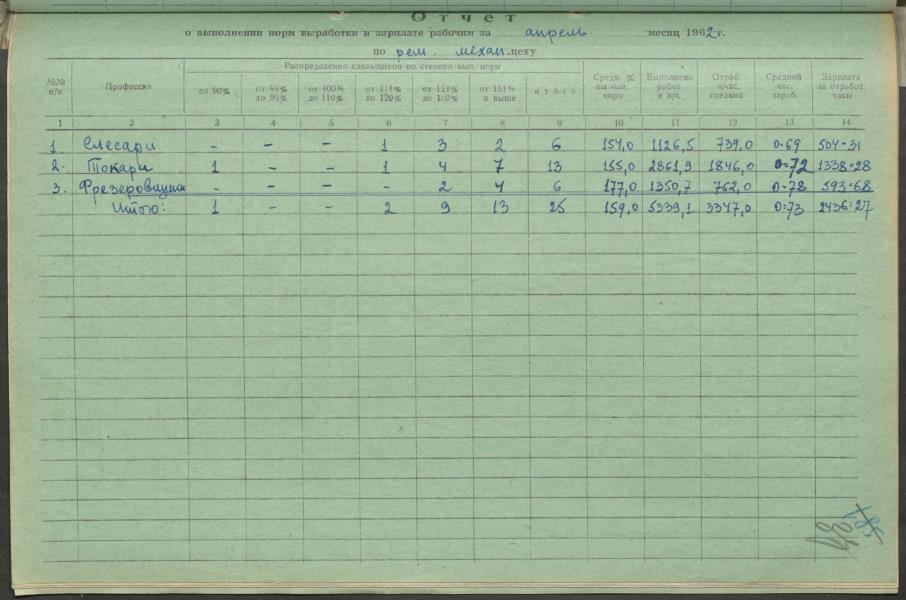 Отчет
о выполнении норм выработки и зарплате рабочим за апрель месяц 1962г.
по рем. механ. цеху
№№ п/п Профессия Распределение сдельщиков по степени вып. норм Средн. % норм Выполнено работ в н/ч. Отраб. ч/час. сдельно Средний час. зараб. Зарплата за отработ. часы
до 90% от 91% до 99% от 100% до 110% от 111% до 120% от 121% до 150% от 151% и выше итого
1 2 3 4 5 6 7 8 9 10 11 12 13 14
1. Слесари - - - 1 3 2 6 154,0 1126,5 739,0 0-69 504=31
2. Токари 1 - - 1 4 7 13 155,0 2861,9 1846,0 0=72 1338=28
3. Фрезеровщики - - - - 2 4 6 177,0 1350,7 762,0 0=78 593=68
Итого: 1 - - 2 9 13 25 159,0 5339,1 3347,0 0=73 2436=27